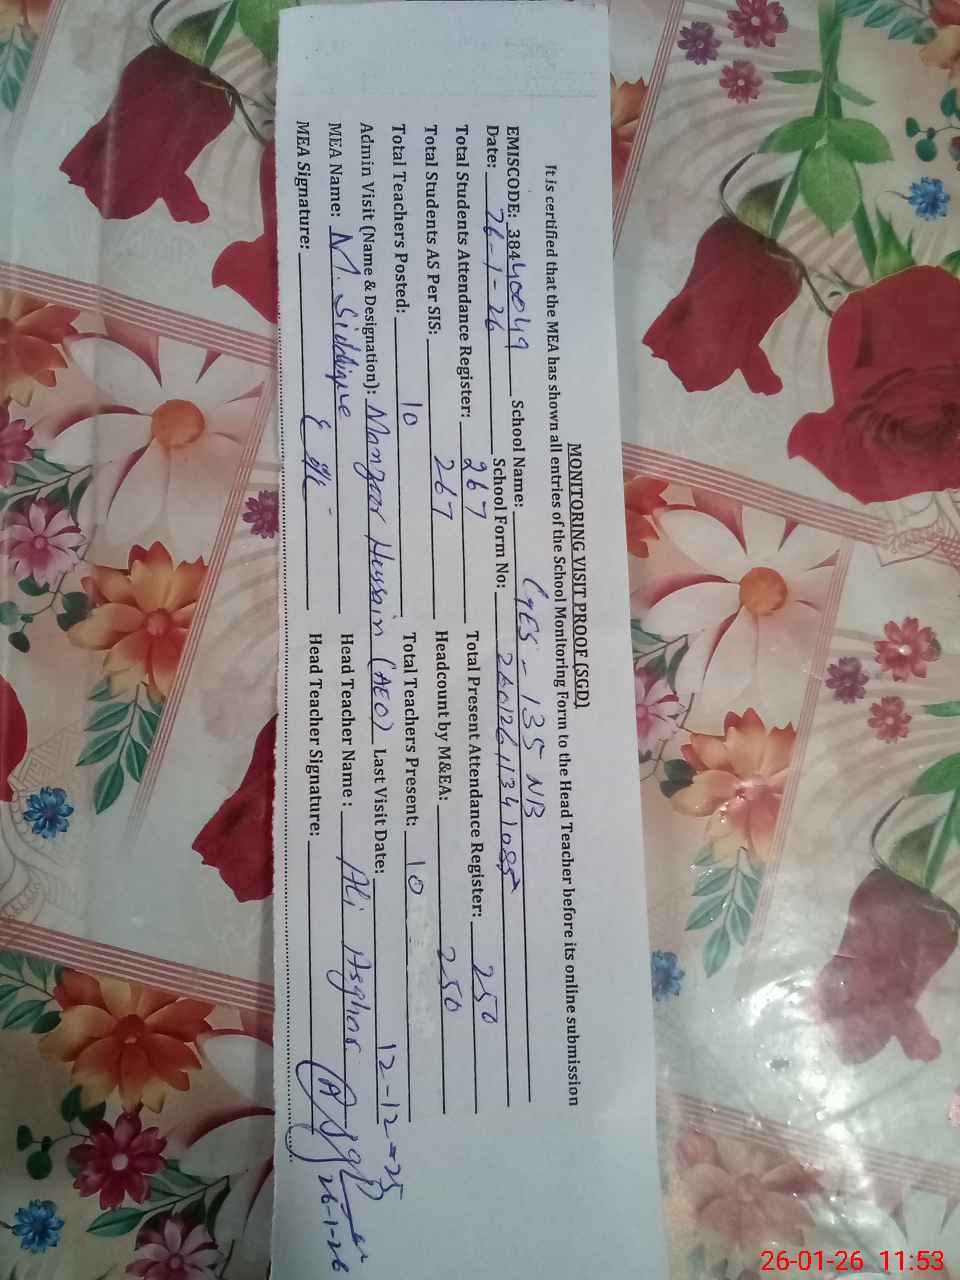 MONITORING VISIT PROOF (SGD)
It is certified that the MEA has shown all entries of the School Monitoring Form to the Head Teacher before its online submission
EMISCODE: 38440049 School Name: GES - 135 NB
Date: 26-1-26 School Form No:
Total Students Attendance Register: 267 Total Present Attendance Register: 250
Total Students AS Per SIS: 267 Headcount by M&EA: 250
Total Teachers Posted: 10 Total Teachers Present: 10
Admin Visit (Name & Designation): Manzar Hussain (AEO) Last Visit Date: 12-12-25
MEA Name: M. Siddique Head Teacher Name : Ali Asghar
MEA Signature: Head Teacher Signature: 26-1-26
26-01-26 11:53